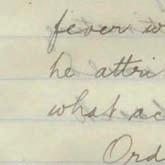 fever w
he attri
what ac
Ord